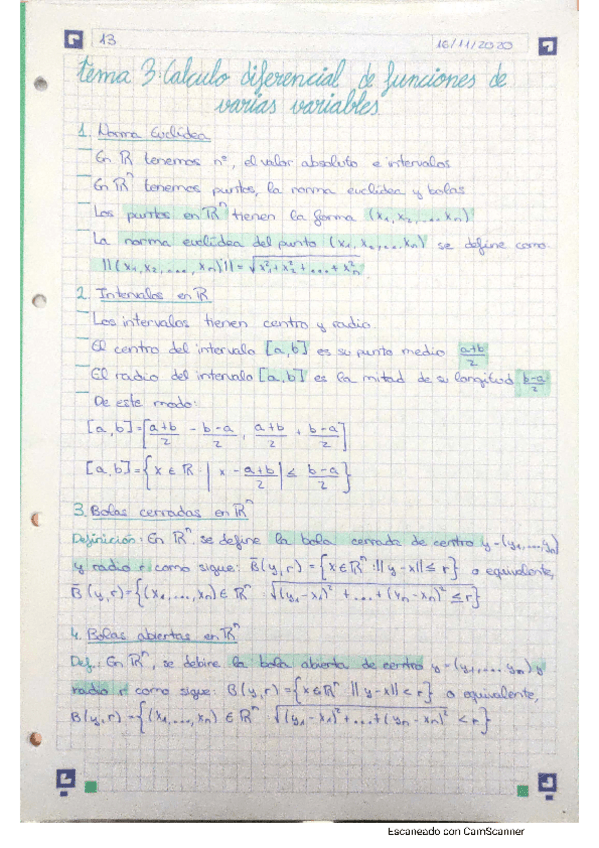 13
16/11/2020
Tema 3: Calculo diferencial de funciones de
varias variables
1. Norma Euclídea
- En ℝ tenemos nº, el valor absoluto e intervalos
- En ℝⁿ tenemos puntos, la norma euclídea y bolas
- Los puntos en ℝⁿ tienen la forma (x₁, x₂, ... xₙ)
- La norma euclídea del punto (x₁, x₂, ... xₙ) se define como
||(x₁, x₂, ..., xₙ)|| = √(x₁² + x₂² + ... + xₙ²)
2. Intervalos en ℝ
- Los intervalos tienen centro y radio.
- El centro del intervalo [a,b] es su punto medio (a+b)/2
- El radio del intervalo [a,b] es la mitad de su longitud (b-a)/2
- De este modo:
[a,b] = [(a+b)/2 - (b-a)/2, (a+b)/2 + (b-a)/2]
[a,b] = {x ∈ ℝ : |x - (a+b)/2| ≤ (b-a)/2}
3. Bolas cerradas en ℝⁿ
Definición: En ℝⁿ, se define la bola cerrada de centro y=(y₁,...,yₙ)
y radio r como sigue: B̄(y,r) = {x∈ℝⁿ : ||y-x|| ≤ r} o equivalente,
B̄(y,r) = {(x₁,...,xₙ) ∈ ℝⁿ : √((y₁-x₁)² + ... + (xₙ-xₙ)²) ≤ r}
4. Bolas abiertas en ℝⁿ
Def.: En ℝⁿ, se debine la bola abierta de centro y=(y₁,... yₙ) y
radio r como sigue: B(y,r) = {x∈ℝⁿ : ||y-x|| < r} o equivalente,
B(y,r) = {(x₁,...,xₙ) ∈ ℝⁿ : √((y₁-x₁)² + ... + (yₙ-xₙ)²) < r}
Escaneado con CamScanner